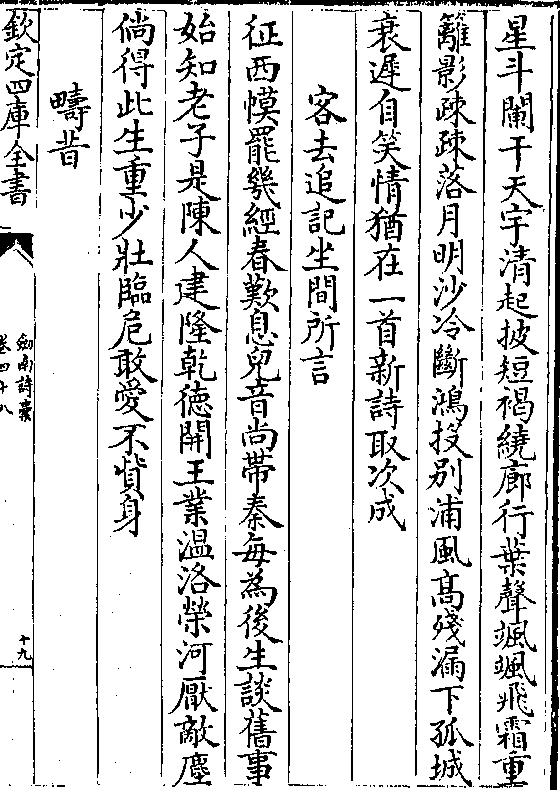 星斗闌干天宇清起披短褐繞廊行葉聲颯颯飛霜重
籬影疎疎落月明沙冷斷鴻投别浦風髙殘漏下孤城
衰遲自笑情猶在一首新詩取次成
客去追記坐間所言
征西幙罷幾經春歎息兒音尚帶秦每為後生談舊事
始知老子是陳人建隆乾徳開王業温洛榮河厭敵塵
倘得此生重少壯臨危敢愛不貲身
疇昔
欽定四庫全書
劍南詩稾
卷四十八
十九